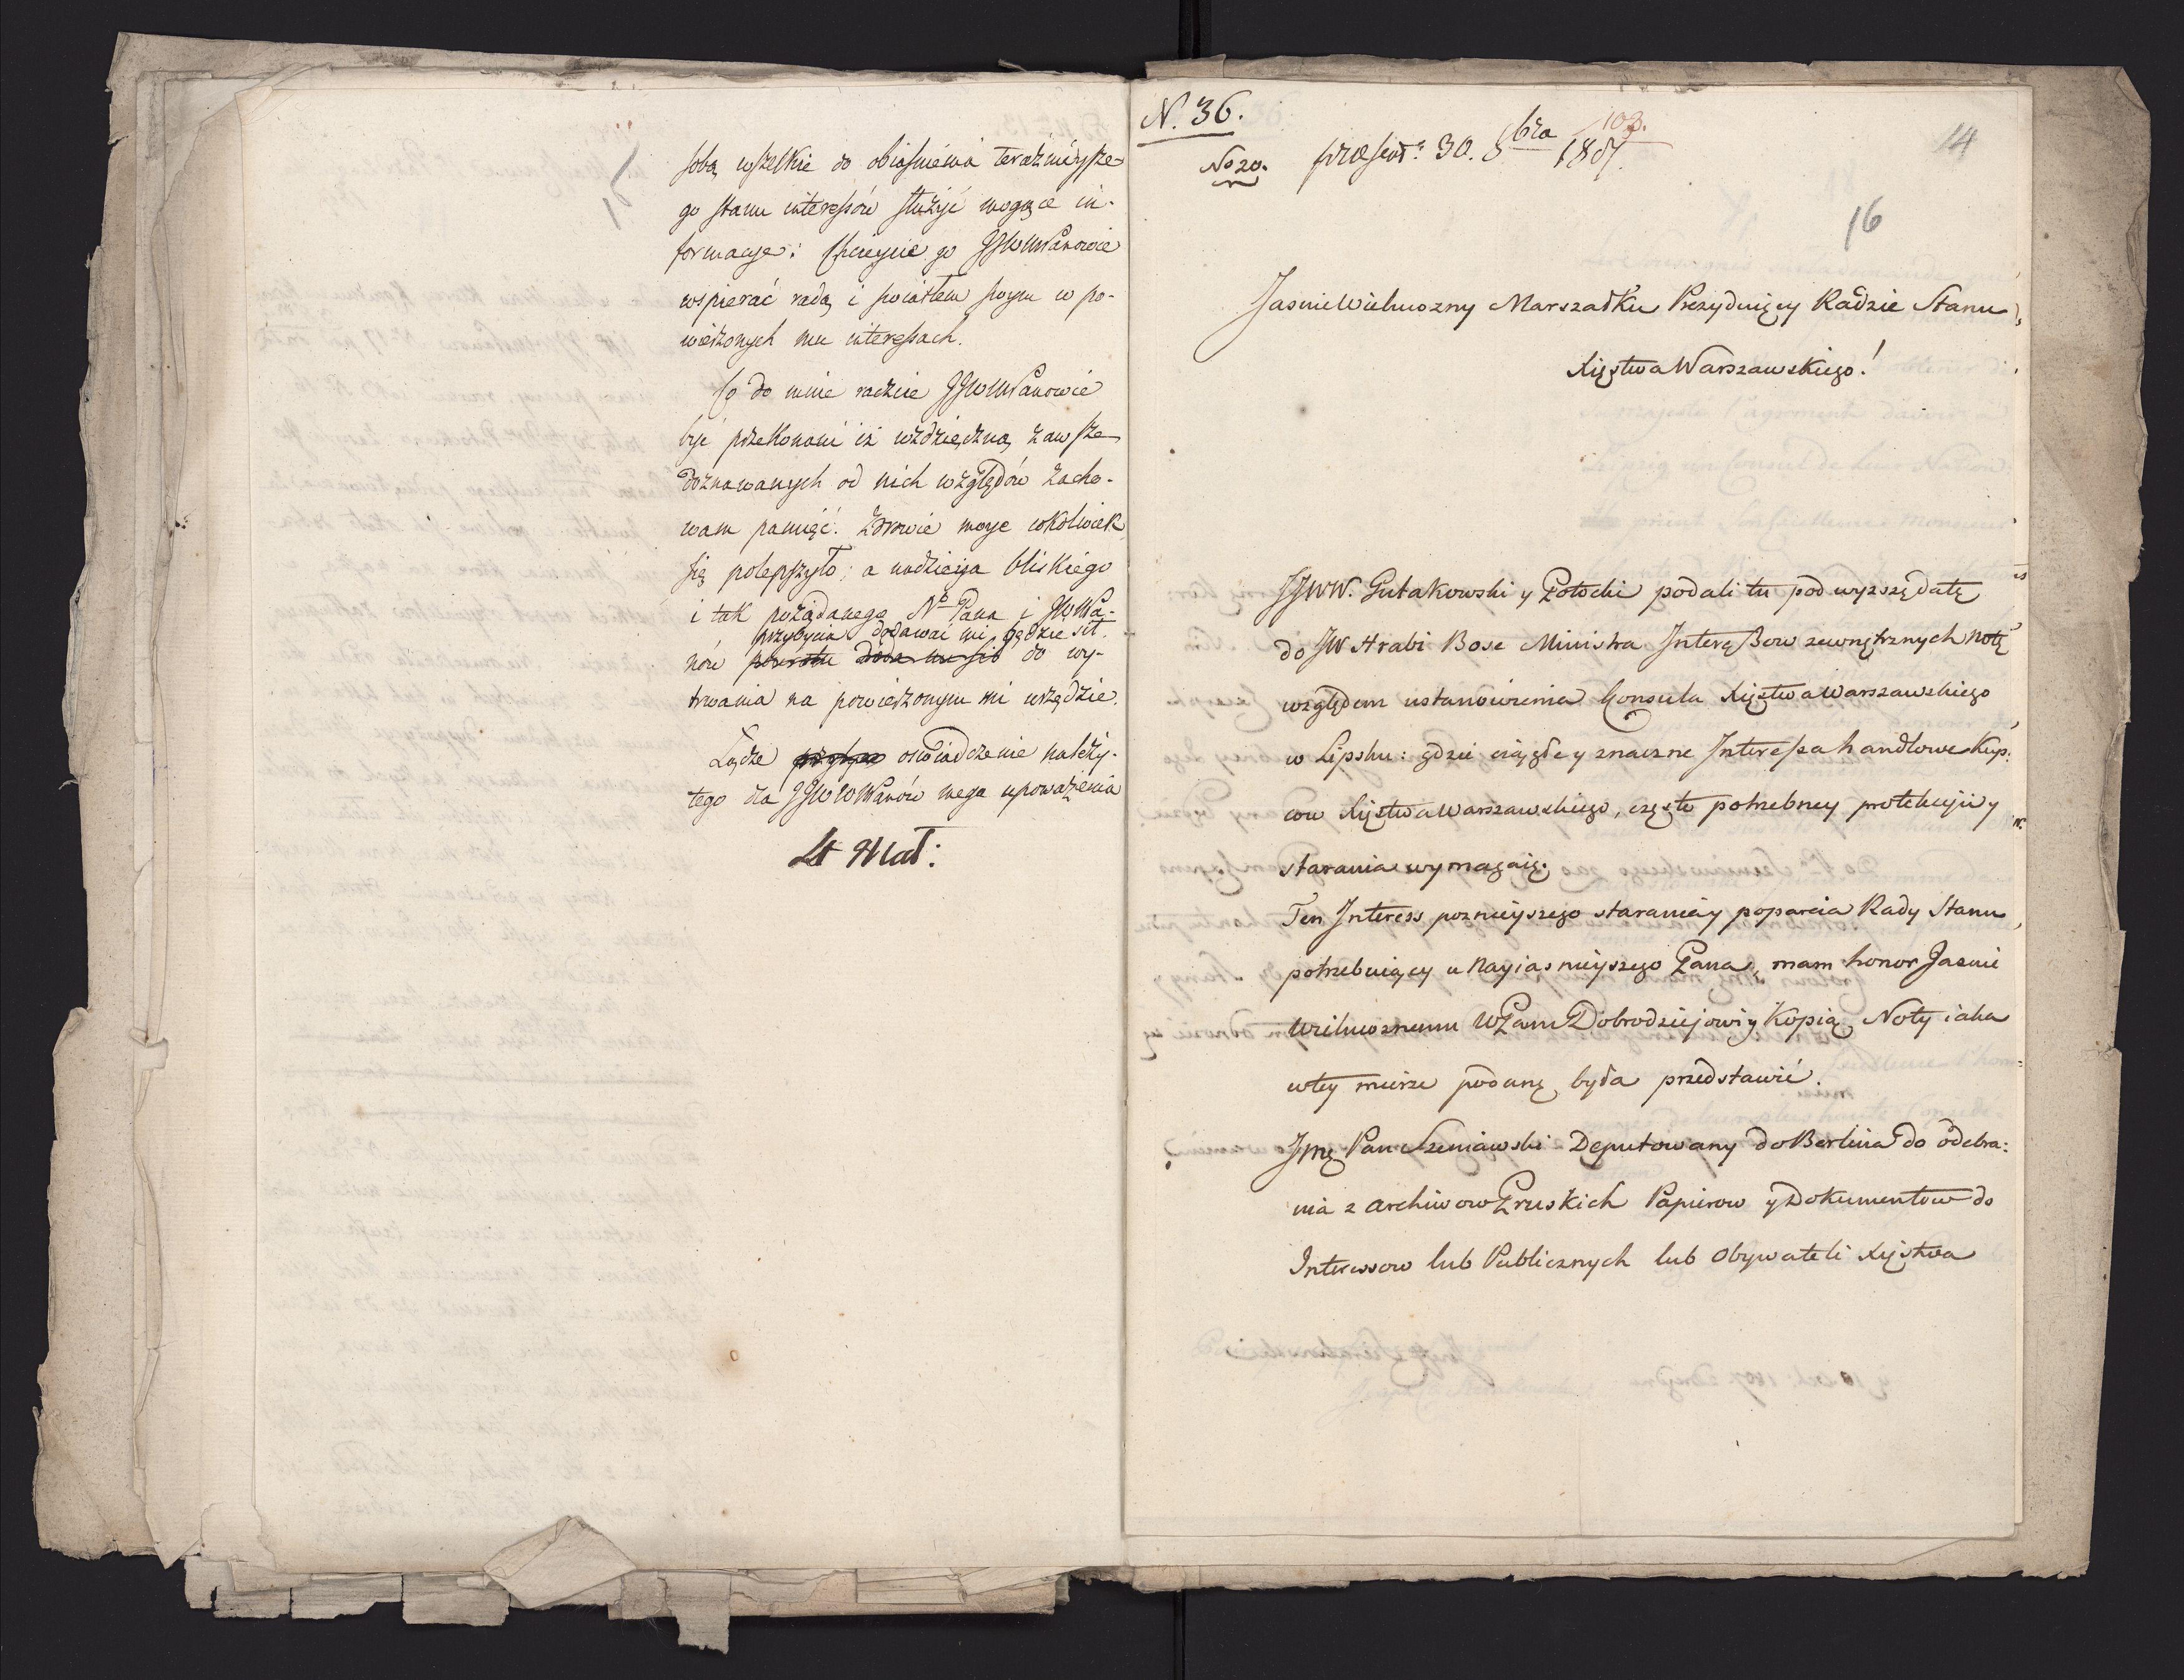 sobą wszelkie do obiaśnienia teraźnieysze-
go stanu interessów służyć mogące in-
formacye: Chcieycie go JJWWPanowie
wspierać radą i światłem swym w po-
wierzonych mu interessach.
Co do mnie raczcie JJWWPanowie
być przekonani iż wdzięczną zawsze
doznawanych od nich względów zacho-
wam pamięć. Zdrowie moje cokolwiek
się polepszyło; a nadzieja bliskiego
i tak pożądanego No Pana i JWWPa-
przybycia dodawać mi będzie sił
nów powrotu doda mi sił do wy-
trwania na powierzonym mi urzędzie.
Łączę oświadczenie należy-
tego dla JJWWPanów mego upoważenia
St Mał:
N. 36.
103.
14
No 20.
praesent: 30. 8bra 1807.
16
Jasnie Wielmozny Marszałku Prezyduiący Radzie Stanu
Xięstwa Warszawskiego!
JJWW. Gutakowski y Potocki podali tu pod wyzszą datą
do JW Hrabi Bose Ministra Interessow zewnętrznych Notę
względem ustanowienia Konsula Xięstwa Warszawskiego
w Lipsku: gdzie ciągłe y znaczne Interessa handlowe Kup:
cow Xięstwa Warszawskiego, często potrzebney protekcyi y
starania wymagaią.
Ten Interess pozneyszego starania y poparcia Rady Stanu
potrzebuiący u Nayiasnieyszego Pana, mam honor Jasnie
Wielmoznemu WPanu Dobrodziejowi y Kopią Noty iaka
wtey mierze podaną była przedstawić.
Jmę Pan Szeniawski Deputowany do Berlina do odebra:
nia z Archiwow Pruskich Papierow y Dokumentow do
Interessow lub Publicznych lub Obywateli Xięstwa